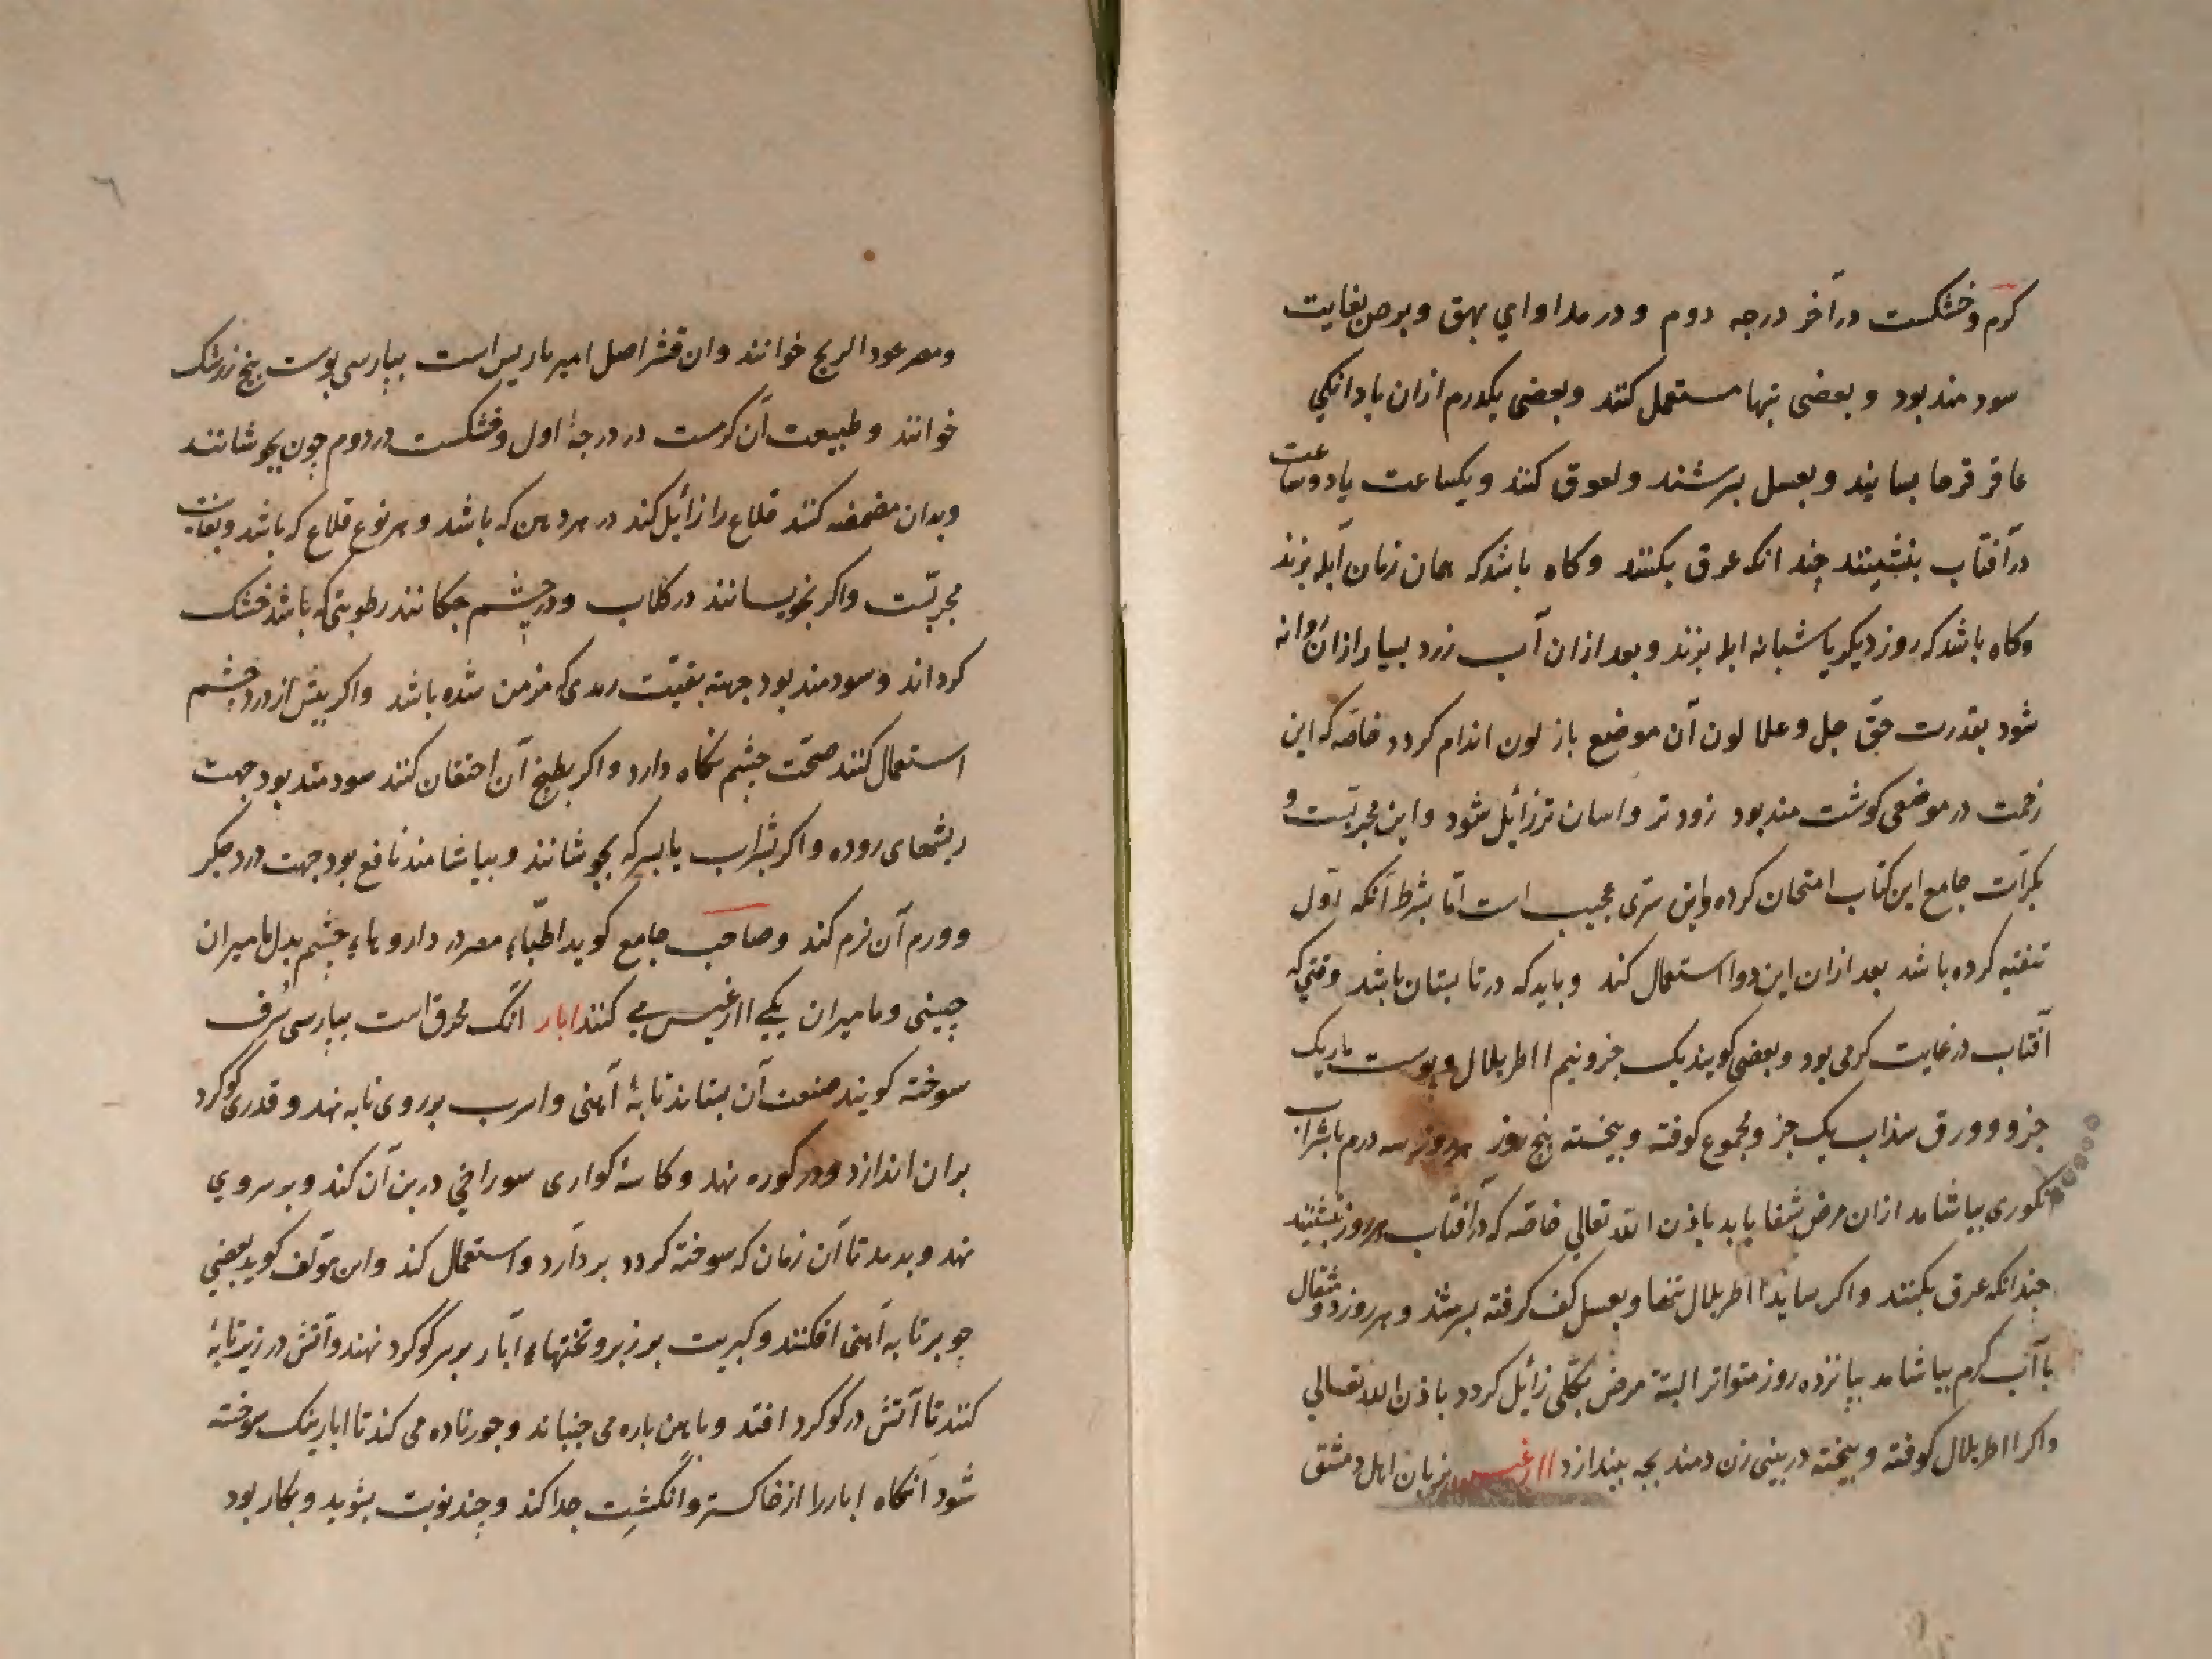 کرم و خشکست در آخر درجه دوم و در مداواي بهق و برص بغایت
سودمند بود و بعضی تنها مستعمل کنند و بعضی یکدرم ازان با دانکي
عاقرقرحا بسایند و بعسل بسرشند و لعوق کنند و یکساعت یا دو ساعت
در آفتاب بنشینند چندانکه عرق بکنند و کاه باشد که همان زمان آبله بزند
و کاه باشد که روز دیکر یا شبانه ابله بزند و بعد ازان آب زرد بسیار ازان روانه
شود بقدرت حق جل و علا لون آن موضع باز لون اندام کردد خاصّه که این
زحمت در موضعی کوشت مند بود زودتر و اسان تر زائل شود و این مجربّست و
بکرّات جامع این کتاب امتحان کرده و این سرّی عجیب است امّا بشرط آنکه اوّل
تنقیه کرده باشد بعد ازان این دوا استعمال کند و باید که در تابستان باشد وقتي که
آفتاب در غایت کرمی بود و بعضی کویند یک جزو نیم ااطریلال و پوست مار یک
جزو و ورق سذاب یک جزو مجموع کوفته و بیخته پنج روز هر روز سه درم با شراب
انکوری بیاشامد ازان مرض شفا یابد باذن الله تعالي خاصّه که در آفتاب هر روز بنشیند
چندانکه عرق بکنند و اکر بسایند ااطریلال تنها و بعسل کف کرفته بسرشد و هر روز دو مثقال
با آب کرم بیاشامد پانزده روز متواتر البتة مرض بکلّی زائل کردد باذن الله تعالي
واکر ااطریلال کوفته و بیخته در بینی زن دمند بچه بیندازد اارغیس بزبان اهل دمشق
و مصر عود الریح خوانند و ان قشر اصل امیرباریس است بپارسی پوست بیخ زرشک
خوانند و طبیعت آن کرمست در درجهٔ اول و خشکست در دوم چون بجوشانند
و بدان مضمضه کنند قلاع را زائل کند در هر دهن که باشد و هر نوع قلاع که باشد و بغایت
مجربّست و اکر بخیسانند در کلاب و در چشم چکانند رطوبتی که باشد خشک
کرداند و سودمند بود جهتہ بقیّت رمدی که مزمن شده باشد و اکر پیش از درد چشم
استعمال کنند صحّت چشم نکاه دارد و اکر بطبخ آن احتقان کنند سودمند بود جهت
ریشهای روده و اکر بشراب یا بسرکه بجوشانند و بیاشامند نافع بود جهت درد جکر
و ورم آن نرم کند و صاحب جامع کوید اطبّاء مصر در داروهاء چشم بدل مامیران
چینی و مامیران مکے اارغیس مے کنند ابار انک محرق است بپارسی سُرف
سوخته کویند صنعت آن بستاند تابهٔ آهنی و اسرب بر روی تابه نهد و قدری گوگرد
بران اندازد و در کوره نهد و کاسهٔ کواری سوراخي در بن آن کند و بر سر وي
نهد و بدمد تا آن زمان که سوخته کردد بردارد و استعمال کند و این مؤلف کوید بعضي
چو بر تابه آهنی افکنند و کبریت بر زبر و تختهاء آبار بر سر گوگرد نهند و آتش در زیر تابهٔ
کنند تا آتش در گوگرد افتد و باهن پاره می جنباند و چو زیاده می کند تا ابار نیک سوخته
شود آنکاه ابار را از خاکستر و انگشت جدا کند و چند نوبت بشوید و بکار بود